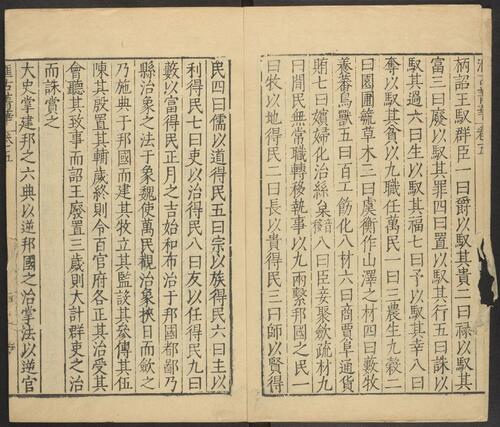 柄詔王馭群臣一曰爵以馭其貴二曰祿以馭其
富三曰廢以馭其罪四曰置以馭其行五曰誅以
馭其過六曰生以馭其福七曰予以馭其幸八曰
奪以馭其貧以九職任萬民一曰三農生九穀二
曰園圃毓草木三曰虞衡作山澤之材四曰藪牧
養蕃鳥獸五曰百工飭化八材六曰商賈阜通貨
賄七曰嬪婦化治絲枲八曰臣妾聚斂疏材九
曰閒民無常職轉移執事以九兩繫邦國之民一
曰牧以地得民二曰長以貴得民三曰師以賢得
民四曰儒以道得民五曰宗以族得民六曰主以
利得民七曰吏以治得民八曰友以任得民九曰
藪以富得民正月之吉始和布治于邦國都鄙乃
縣治象之法于象魏使萬民觀治象挾日而斂之
乃施典于邦國而建其牧立其監設其參傅其伍
陳其殷置其輔歲終則令百官府各正其治受其
會聽其致事而詔王廢置三歲則大計群吏之治
而誅賞之
大史掌建邦之六典以逆邦國之治掌法以逆官